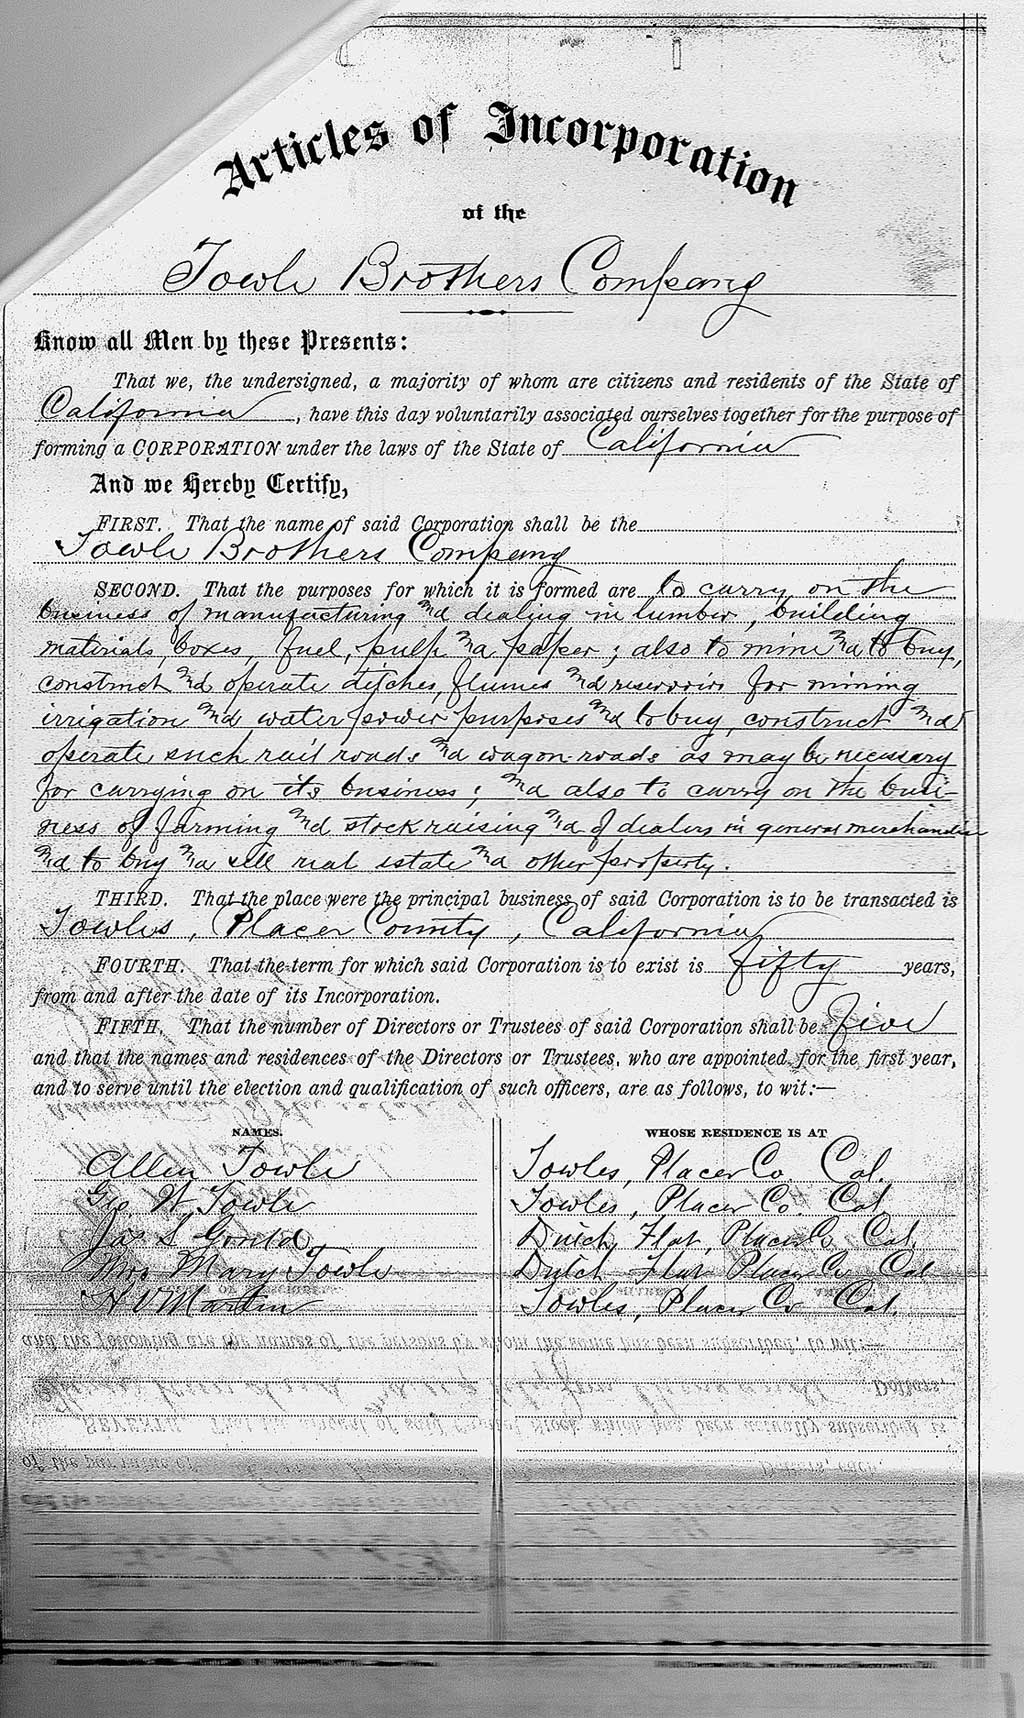 Articles of Incorporation
of the
Towle Brothers Company
Know all Men by these Presents:
That we, the undersigned, a majority of whom are citizens and residents of the State of
California, have this day voluntarily associated ourselves together for the purpose of
forming a CORPORATION under the laws of the State of California
And we Hereby Certify,
FIRST. That the name of said Corporation shall be the
Towle Brothers Company
SECOND. That the purposes for which it is formed are to carry on the
business of manufacturing and dealing in lumber, building
materials, boxes, fuel, pulp and paper; also to mine and to buy,
construct and operate ditches, flumes and reservoirs for mining
irrigation and water power purposes and to buy, construct and
operate such rail roads and wagon-roads as may be necessary
for carrying on its business; and also to carry on the busi-
ness of farming and stock raising and of dealers in general merchandise
and to buy and sell real estate and other property.
THIRD. That the place were the principal business of said Corporation is to be transacted is
Towles, Placer County, California
FOURTH. That the term for which said Corporation is to exist is fifty years,
from and after the date of its Incorporation.
FIFTH. That the number of Directors or Trustees of said Corporation shall be five
and that the names and residences of the Directors or Trustees, who are appointed for the first year,
and to serve until the election and qualification of such officers, are as follows, to wit:—
NAMES. WHOSE RESIDENCE IS AT
Allen Towle Towles, Placer Co Cal.
Geo W. Towle Towles, Placer Co. Cal.
Jas S. Gould Dutch Flat, Placer Co Cal.
Mrs Mary Towle Dutch Flat Placer Co Cal
H V Martin Towles, Placer Co Cal.
and the following are the names of the persons by whom the same has been subscribed, to wit:—
Dollars,
Stock which has been actually subscribed is
of the par value of Dollars, each.